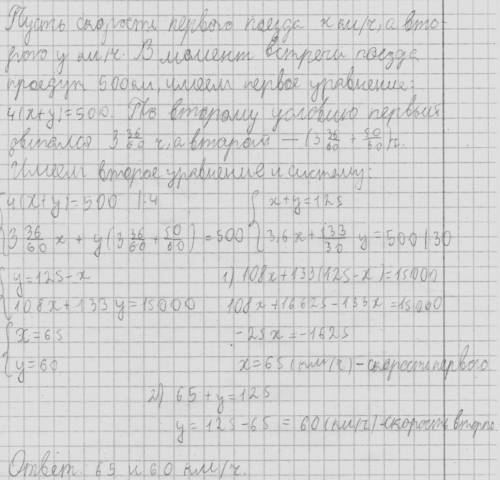 Пусть скорость первого поезда x км/ч, а вто-
рого y км/ч. В момент встречи поезда
проедут 500 км, имеем первое уравнение:
4(x+y)=500. По второму условию первый
двигался 3 36/60 ч, а второй — (3 36/60 + 50/60)ч.
Имеем второе уравнение и систему:
{ 4(x+y)=500 |:4
3 36/60 x + y(3 36/60 + 50/60) = 500
{ x+y=125
3,6x + 133/30 y = 500 |·30
{ y=125-x
108x+133y=15000
1) 108x+133(125-x)=15000
108x+16625-133x=15000
-25x=-1625
x=65 (км/ч)-скорость первого
{ x=65
y=60
2) 65+y=125
y=125-65 = 60 (км/ч)-скорость второго
Ответ: 65 и 60 км/ч.